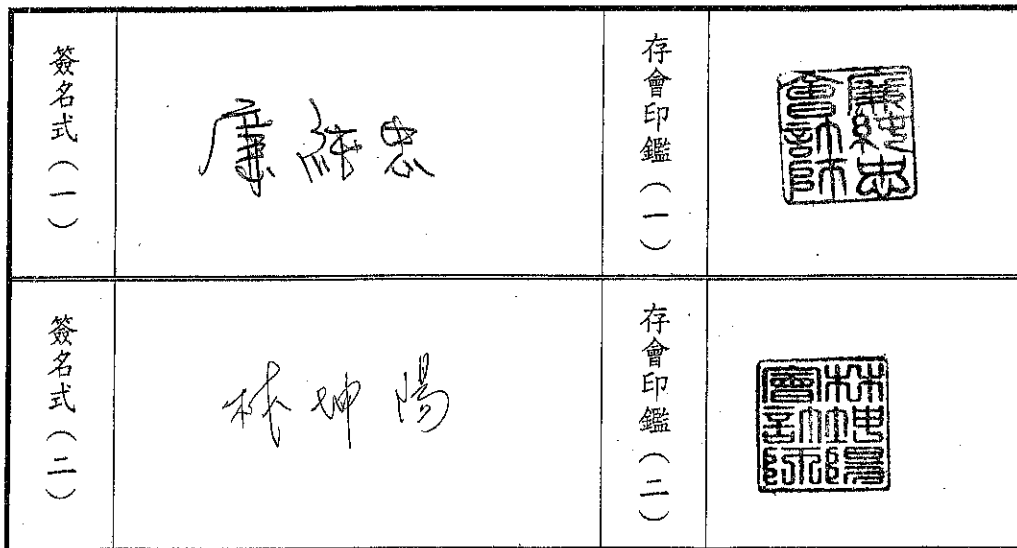 簽名式(一)
廉純忠
存會印鑑(一)
廉純忠
會計師
簽名式(二)
林坤陽
存會印鑑(二)
林坤陽
會計師